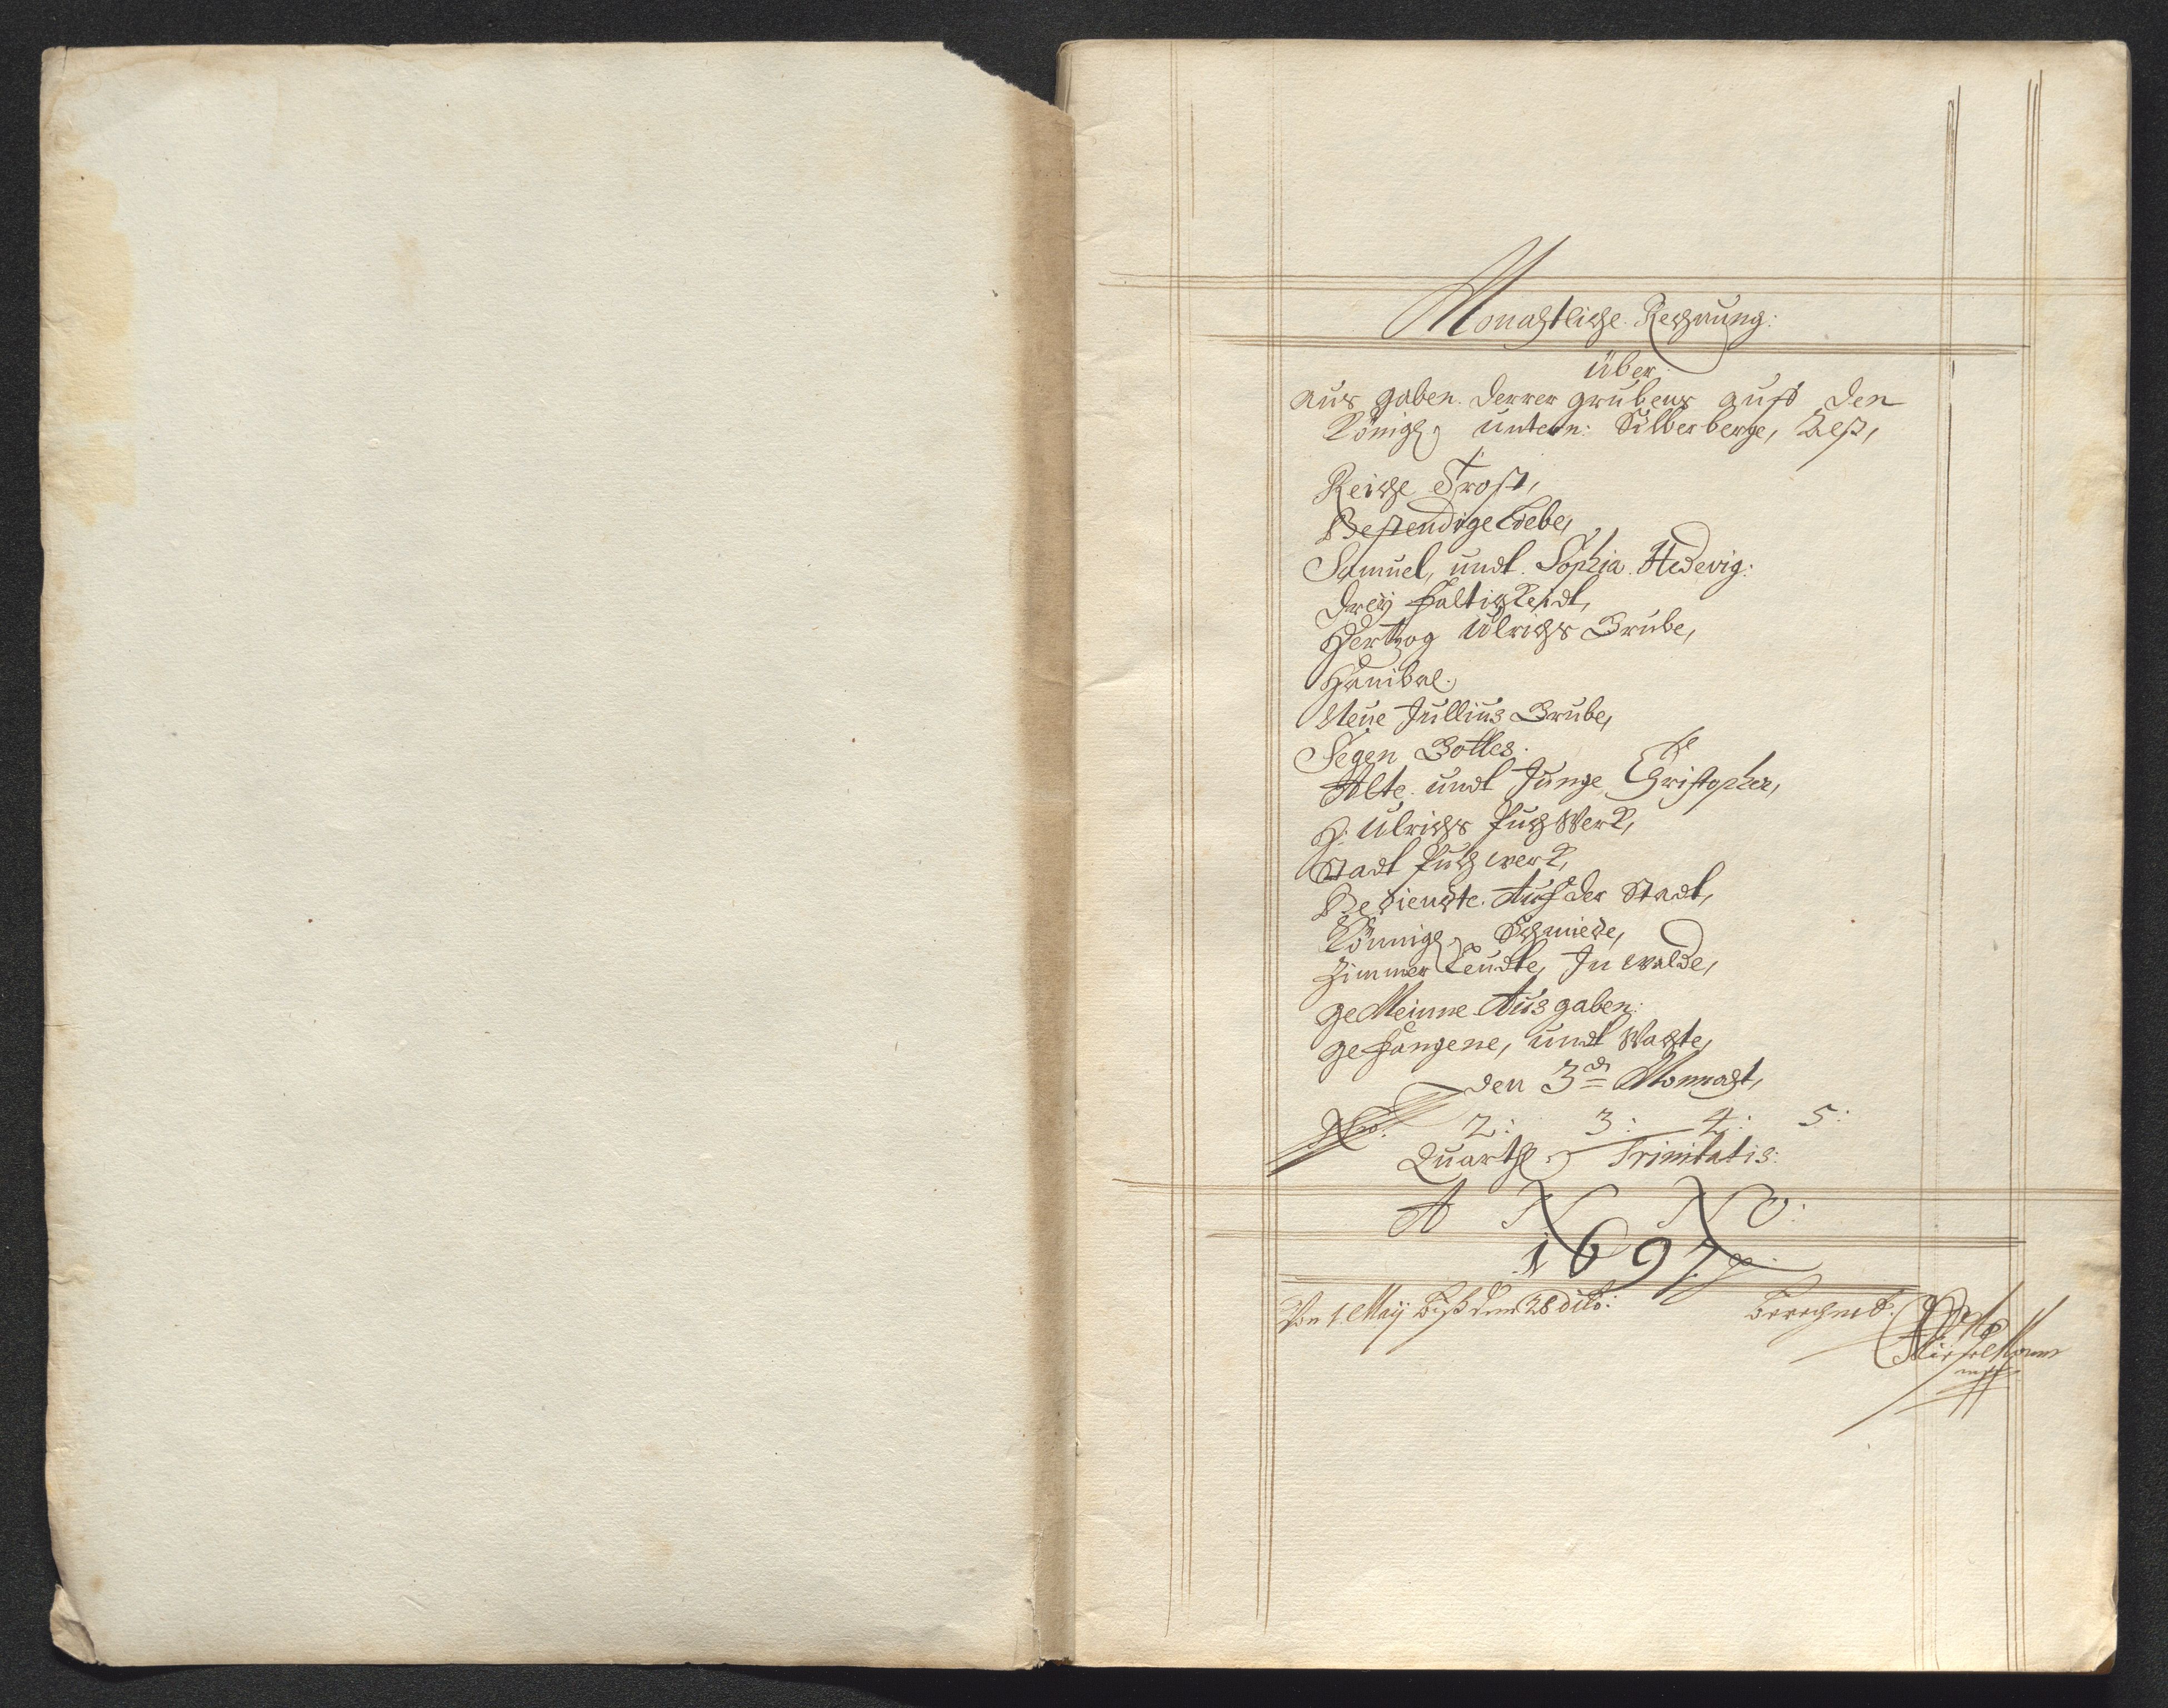 Monahtliche Rechnung:
über
aus gaben. derrer grubens auff den
Königl: untern: Silberberge, Alß,
Reiche Trost,
Bestendige Liebe,
Samuel, undt. Sophia. Hedevig:
Dreÿ faltigkeidt,
Hertzog Ulrichs Grube,
Hanibal.
Neue Jullius Grube,
Segen Gottes.
Alte undt Junge Christopher,
H: Ulrichs Puchwerk,
Stadt Puchwerk,
Bediente. Auf der Stadt,
Könnigl: Schmiede,
Zimmer Leudte, In walde,
ge Meinne Ausgaben:
gefangene, undt Wachte,
den 3 Monnaht,
No: 2: 3: 4: 5:
Quarthl: Trinitatis:
ANNO:
1697
Von 1. Maÿ biß den 28 dito:
berechnet.